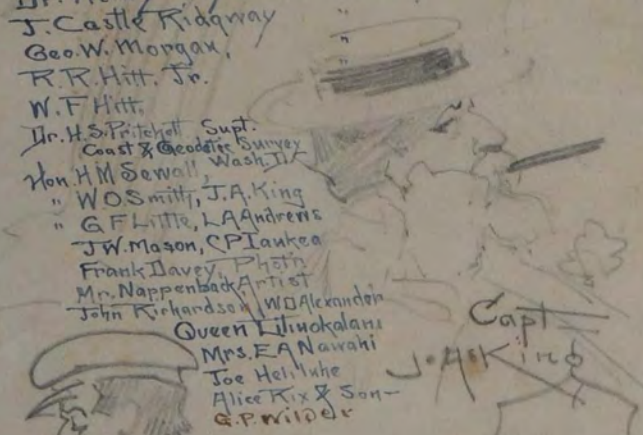 J. Castle Ridgway "
Geo. W. Morgan, "
R. R. Hitt. Jr.
W. F. Hitt,
Dr. H. S. Pritchett, Supt.
Coast & Geodetic Survey
Wash. D.C.
Hon. H M Sewall,
" W O Smith, J. A. King
" G F Little, L A Andrews
J W. Mason, C P Iaukea
Frank Davey, Phot'r
Mr. Nappenback Artist
John Richardson, W D Alexander
Queen Liliuokalani
Mrs. E A Nawahi
Joe Heleluhe
Alice Rix & Son
G. P. Wilder
Capt
J. A. King